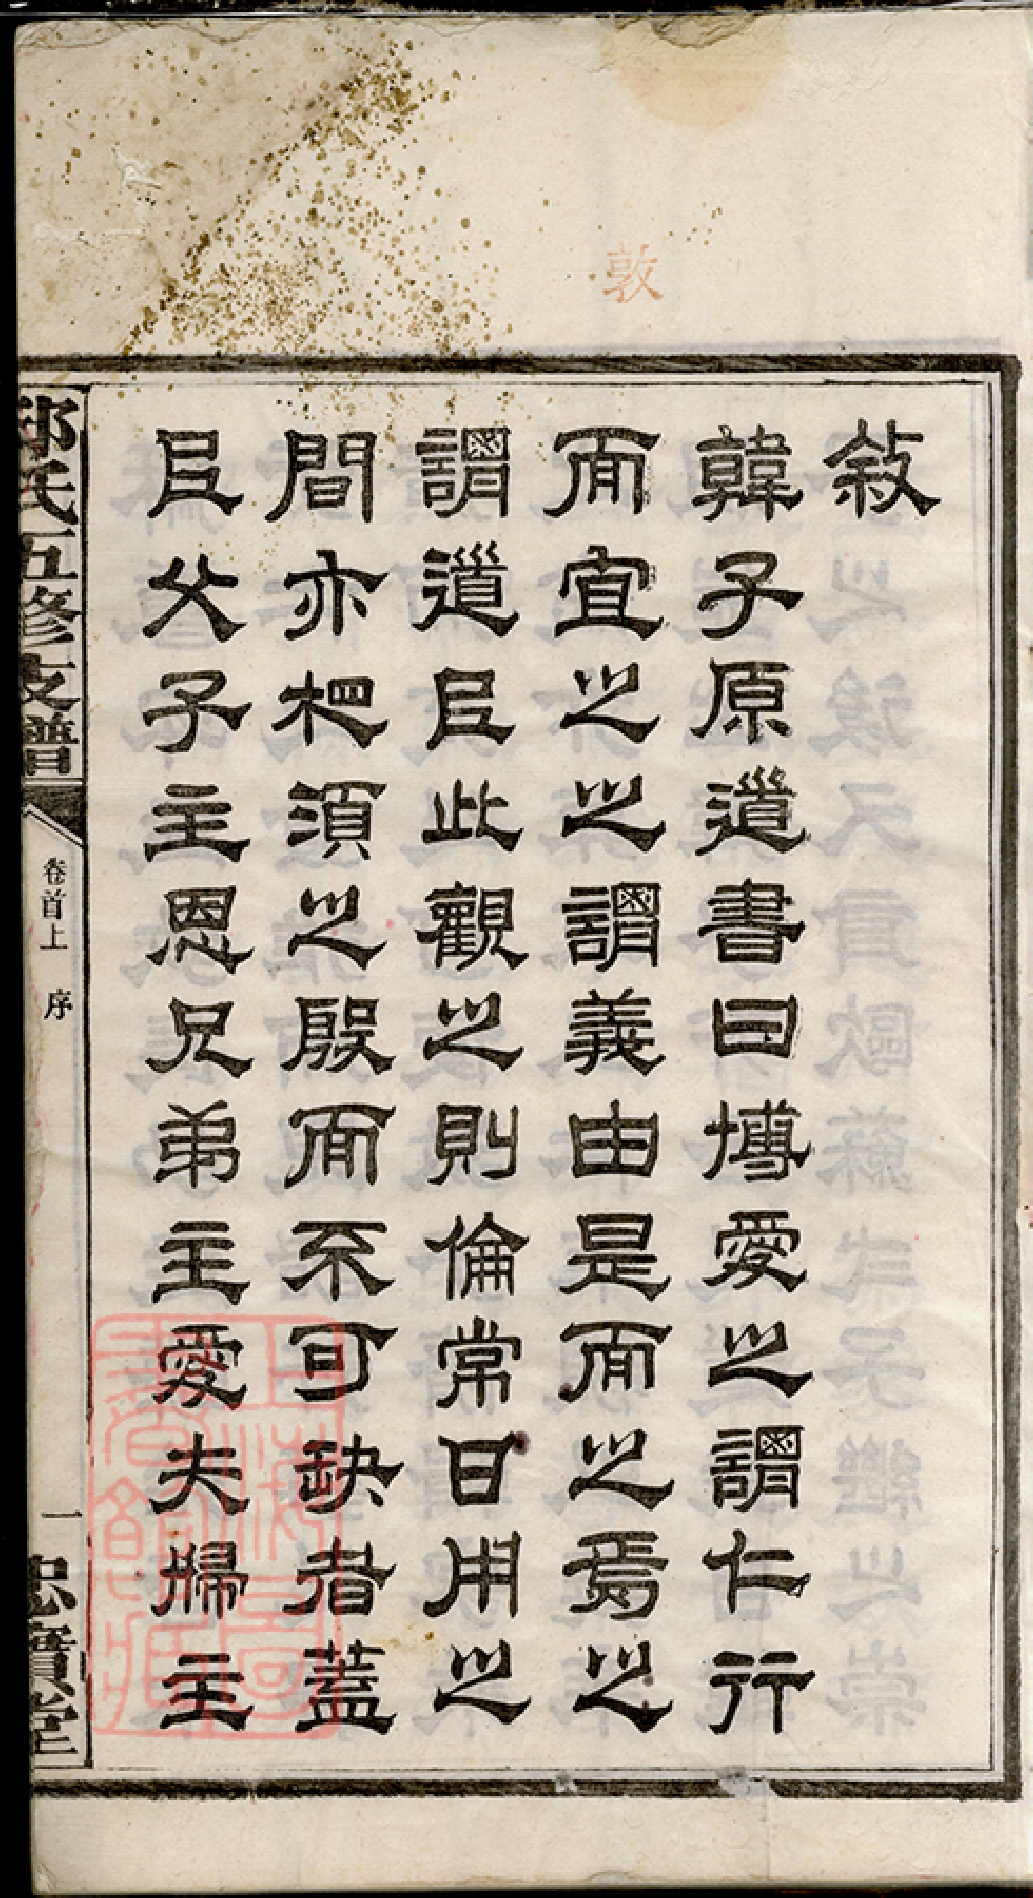 敦
敘
韓子原道書曰博愛之謂仁行
而宜之之謂義由是而之焉之
謂道㠯此觀之則倫常日用之
間亦相須之殷而不可缺者蓋
㠯父子主恩兄弟主愛夫婦主
氏五修支譜
卷首上 序
一
忠實堂
上海圖
書館藏